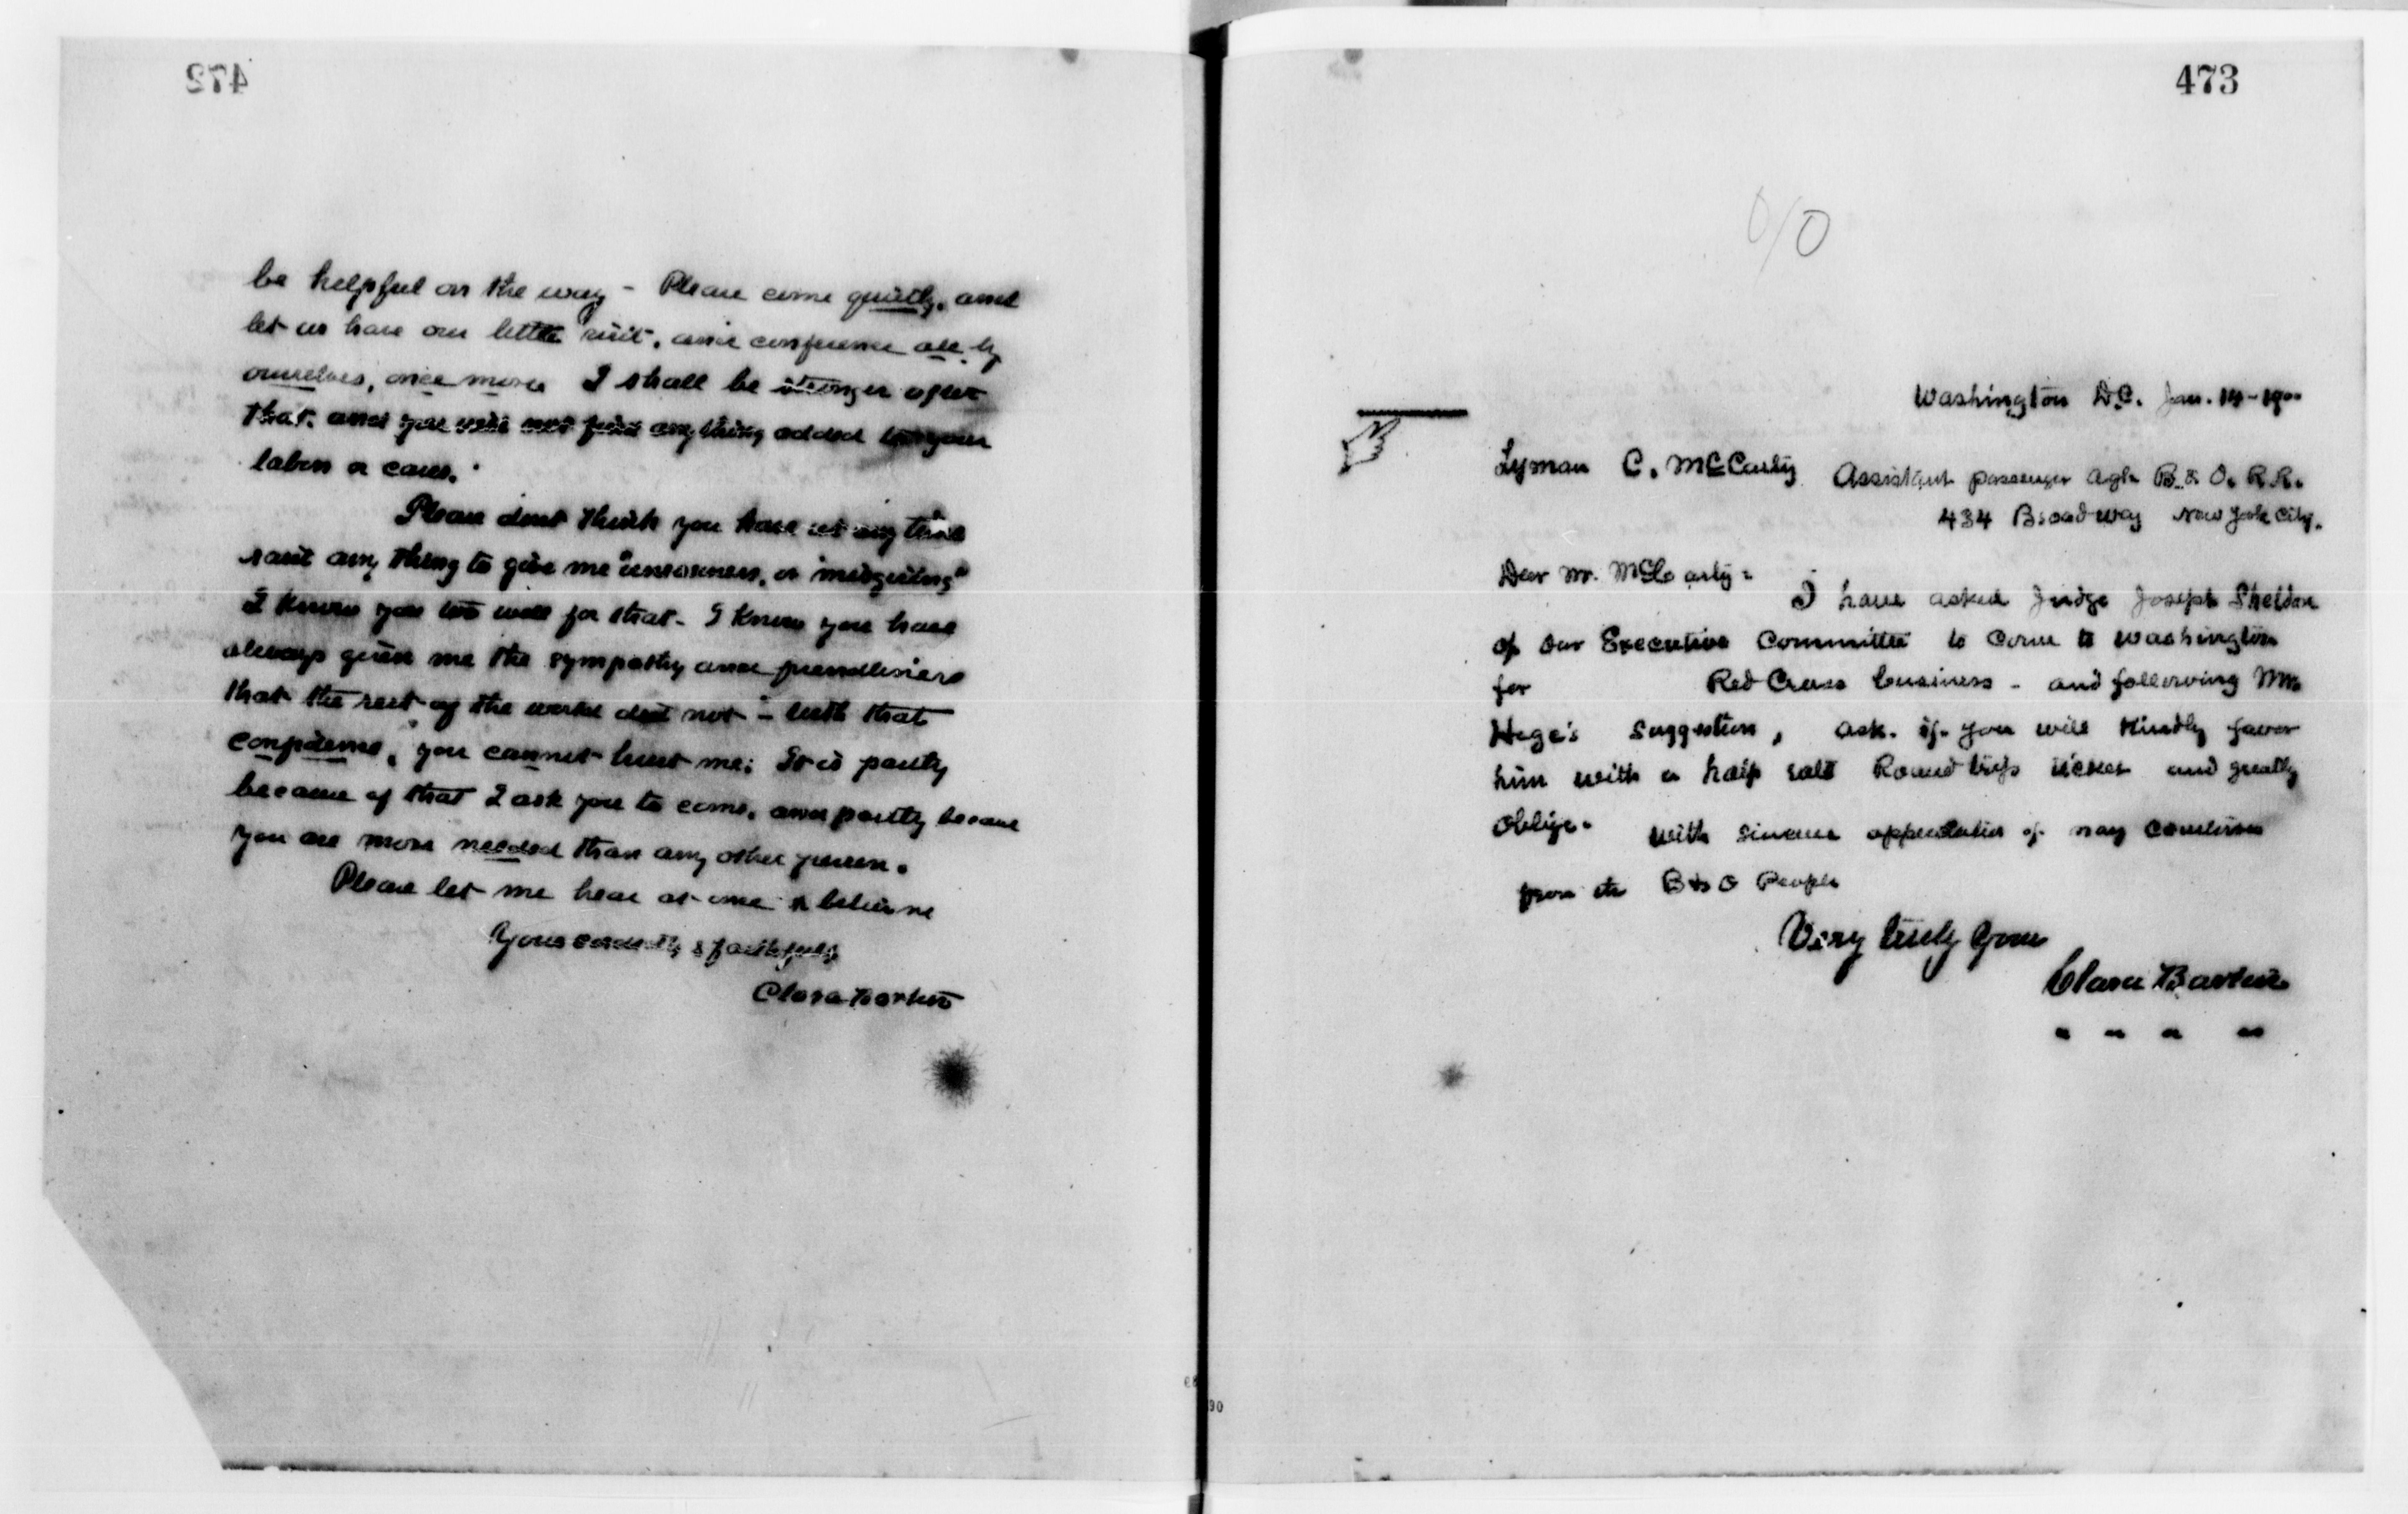 472
be helpful on the way - Please come quietly, and
let us have our little visit, and conference all by
ourselves, once more I shall be stronger after
that, and you will not find anything added to your
labors or cares.
Please dont think you have at any time
said any thing to give me "uneasiness, or misgiving"
I know you too well for that - I know you have
always given me the sympathy and friendliness
that the rest of the world did not - with that
confidence, you cannot hurt me; It is partly
because of that I ask you to come, and partly because
you are more needed than any other person.
Please let me hear at once & believe me
Yours cordially & faithfully
Clara Barton
473
Washington D.C. Jan. 14 - 1900
Lyman C. McCarty Assistant passenger agt. B. & O. R.R.
434 Broadway New York City.
Dear Mr. McCarty =
I have asked Judge Joseph Sheldon
of our Executive Committee to come to Washington
for Red Cross business - and following Mr.
Hege's suggestion, ask. if you will kindly favor
him with a half rate Round trip ticket and greatly
oblige.
with sincere appreciation of many courtesies
from the B & O People
Very truly Yours
Clara Barton